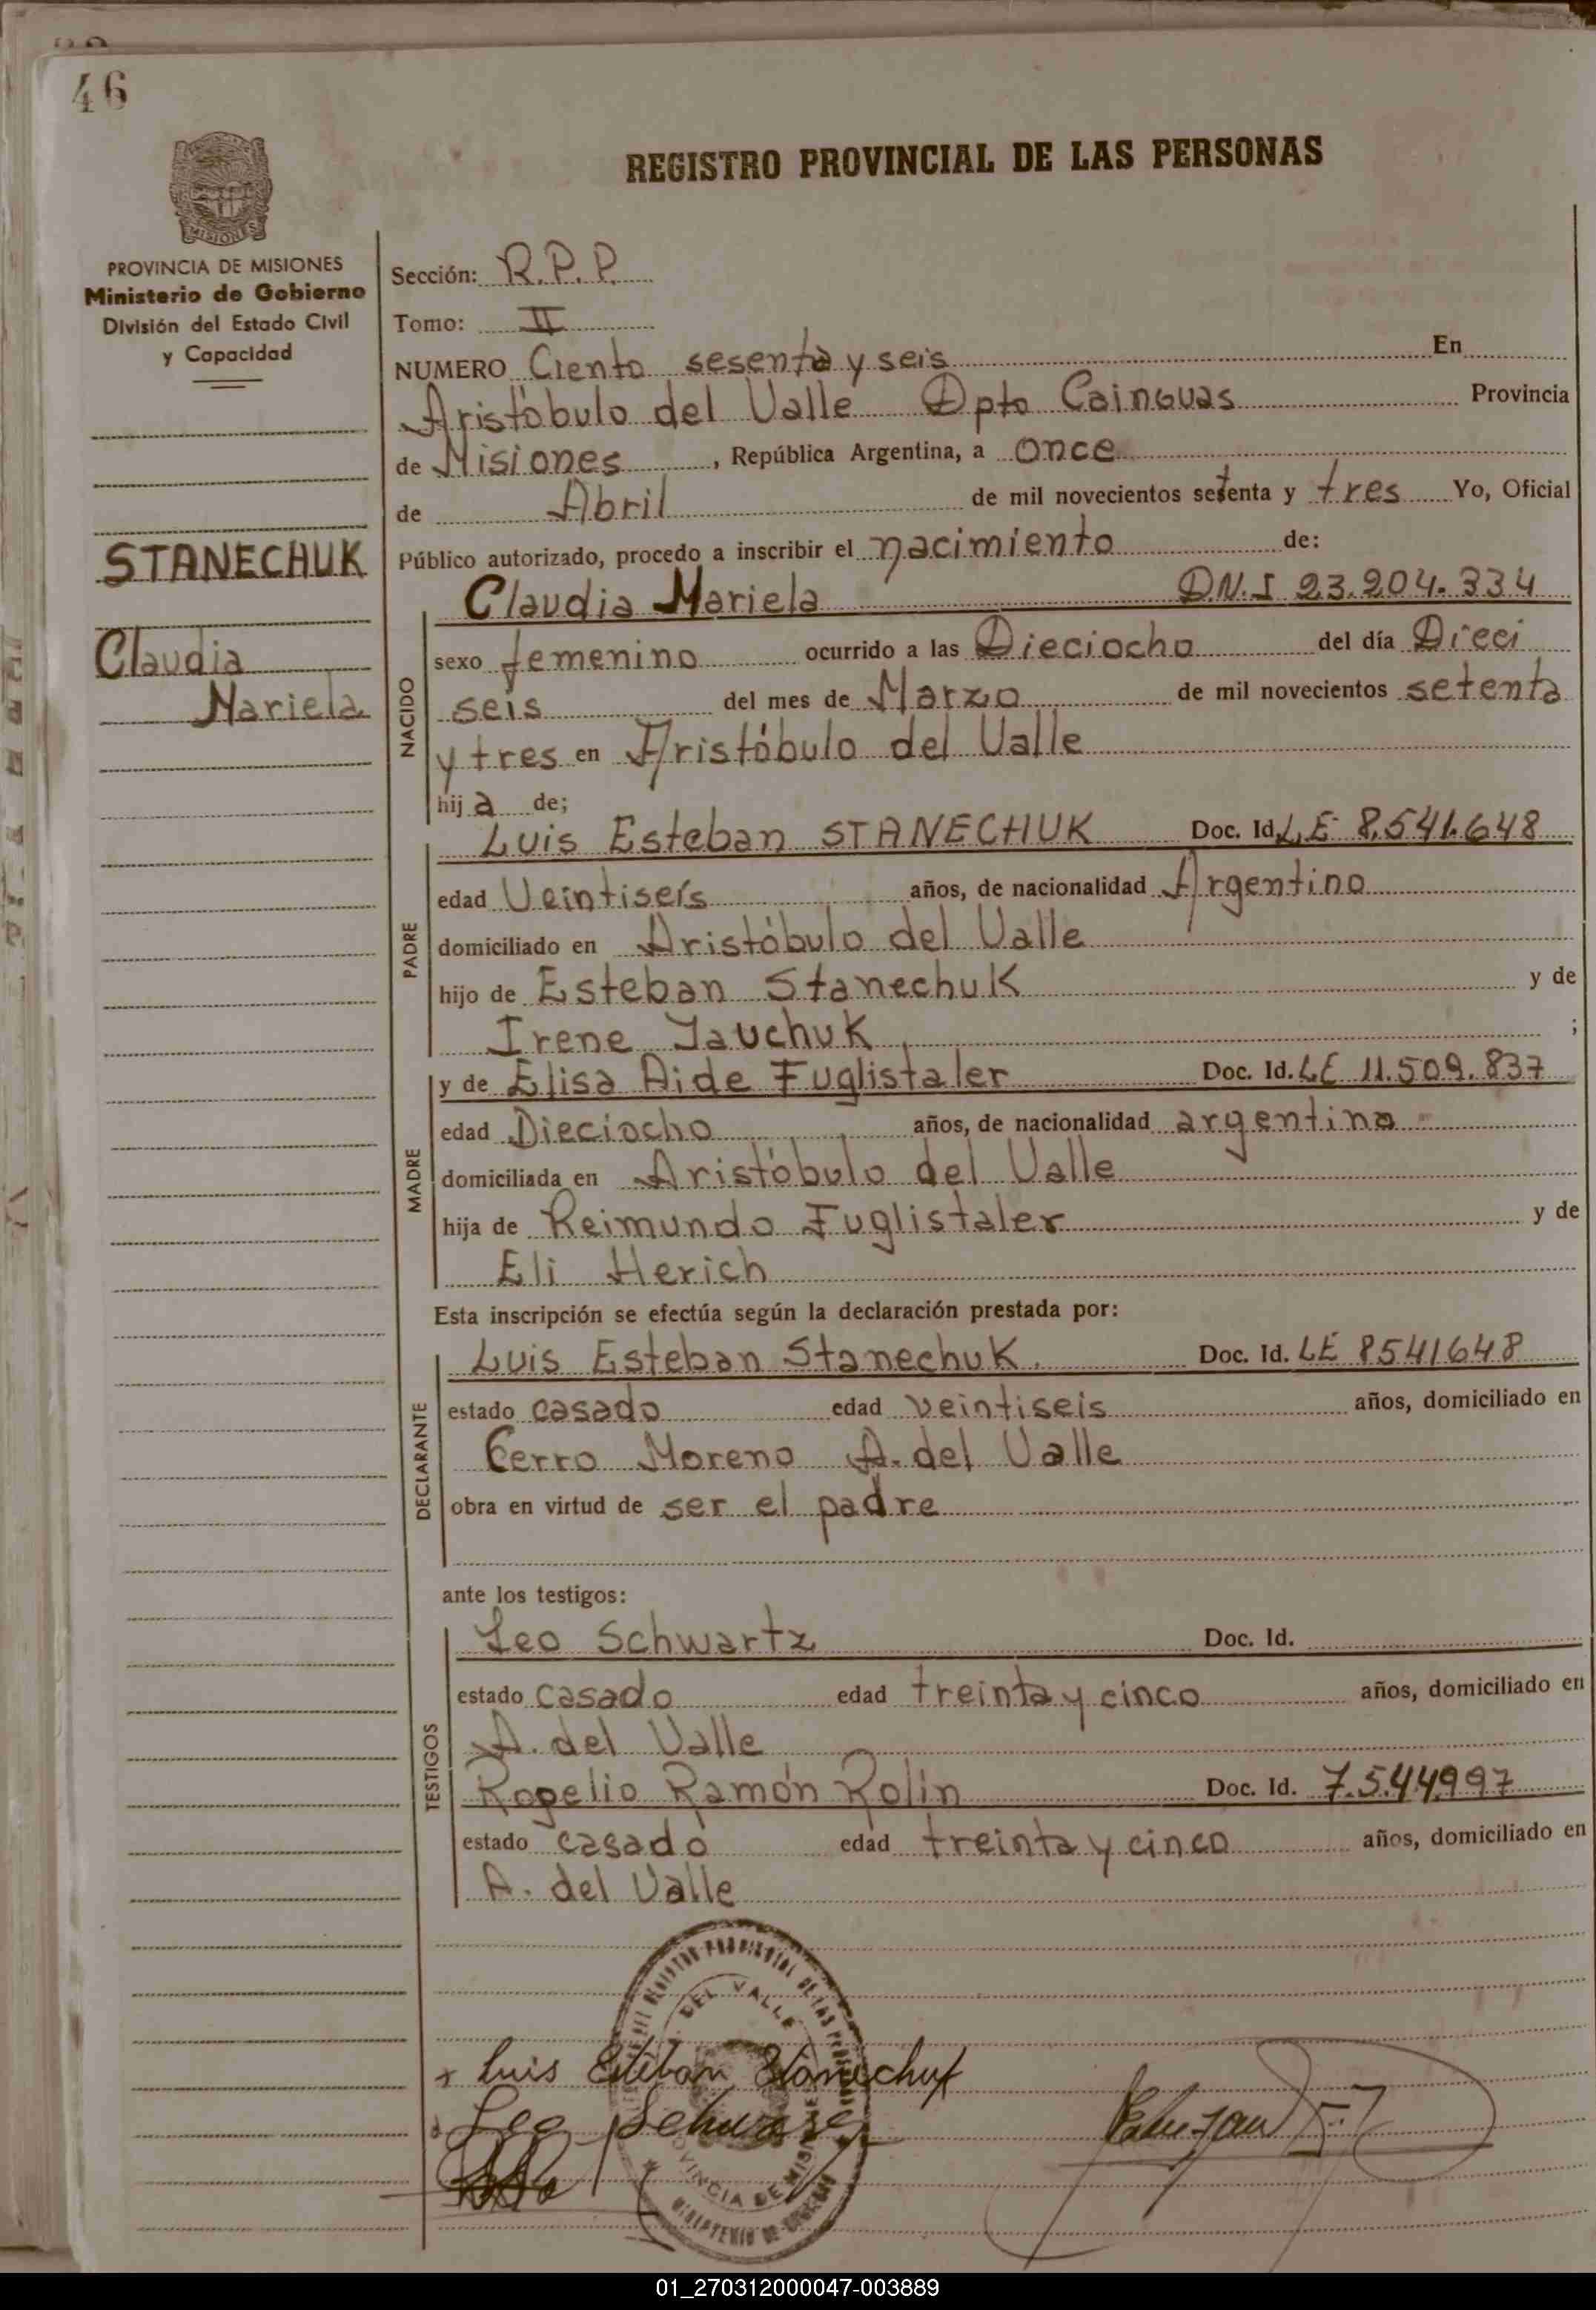 46
REGISTRO PROVINCIAL DE LAS PERSONAS
MISIONES
PROVINCIA DE MISIONES
Ministerio de Gobierno
División del Estado Civil
y Capacidad
STANECHUK
Claudia
Mariela
Sección: R.P.P.
Tomo: II
NUMERO Ciento sesenta y seis En
Aristóbulo del Valle Dpto Cainguas Provincia
de Misiones, República Argentina, a once
de Abril de mil novecientos setenta y tres Yo, Oficial
Público autorizado, procedo a inscribir el nacimiento de:
NACIDO
Claudia Mariela D.N.I 23.204.334
sexo femenino ocurrido a las Dieciocho del día Dieci
seis del mes de Marzo de mil novecientos setenta
y tres en Aristóbulo del Valle
hija de;
PADRE
Luis Esteban STANECHUK Doc. Id. LE 8.541.648
edad Veintiseís años, de nacionalidad Argentino
domiciliado en Aristóbulo del Valle
hijo de Esteban Stanechuk y de
Irene Jauchuk ;
MADRE
y de Elisa Aide Fuglistaler Doc. Id. LE 11.509.837
edad Dieciocho años, de nacionalidad argentina
domiciliada en Aristóbulo del Valle
hija de Reimundo Fuglistaler y de
Eli Herich
Esta inscripción se efectúa según la declaración prestada por:
DECLARANTE
Luis Esteban Stanechuk. Doc. Id. LE 8541648
estado casado edad veintiseis años, domiciliado en
Cerro Moreno A. del Valle
obra en virtud de ser el padre
ante los testigos:
TESTIGOS
Leo Schwartz Doc. Id.
estado casado edad treinta y cinco años, domiciliado en
A. del Valle
Rogelio Ramón Rolin Doc. Id. 7.544997
estado casado edad treinta y cinco años, domiciliado en
A. del Valle
REGISTRO PROVINCIAL DE LAS
DEL VALLE
x Luis Esteban Stanechuk
Leo
PROVINCIA DE MISIONES
MINISTERIO DE GOBIERNO
01_270312000047-003889